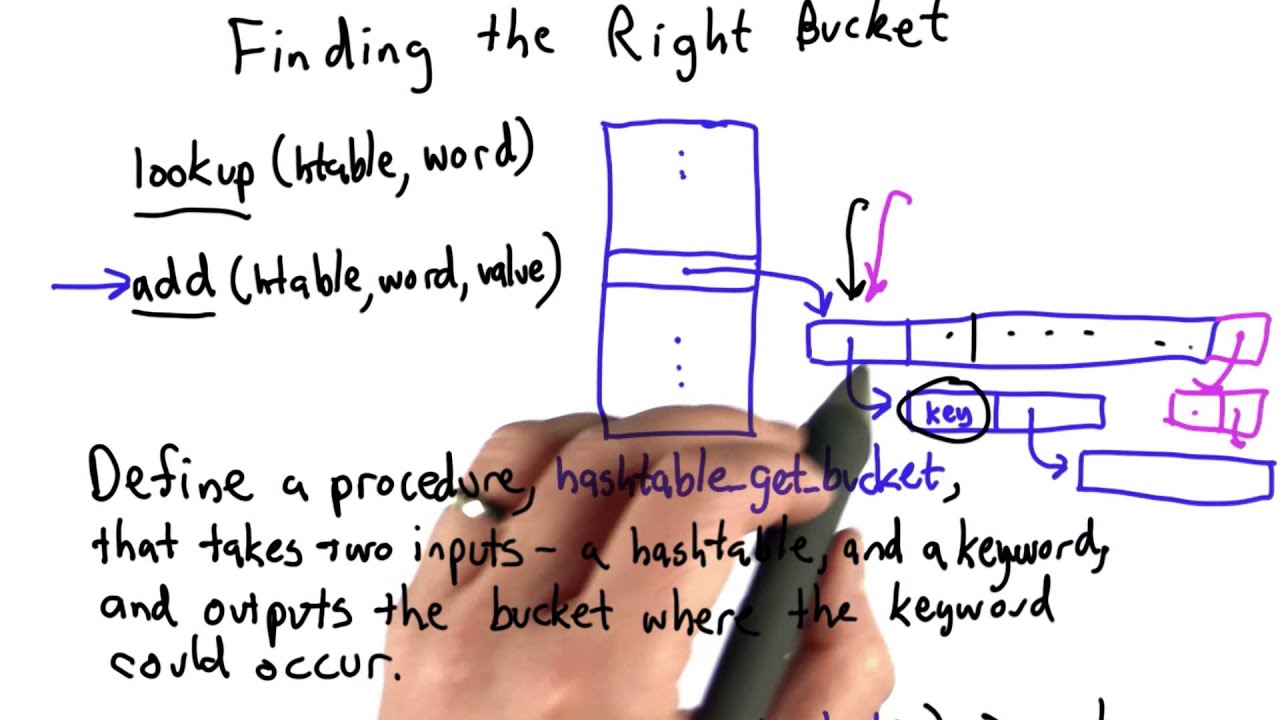 Finding the Right Bucket
lookup (htable, word)
add (htable, word, value)
key
Define a procedure, hashtable_get_bucket,
that takes two inputs - a hashtable, and a keyword,
and outputs the bucket where the keyword
could occur.